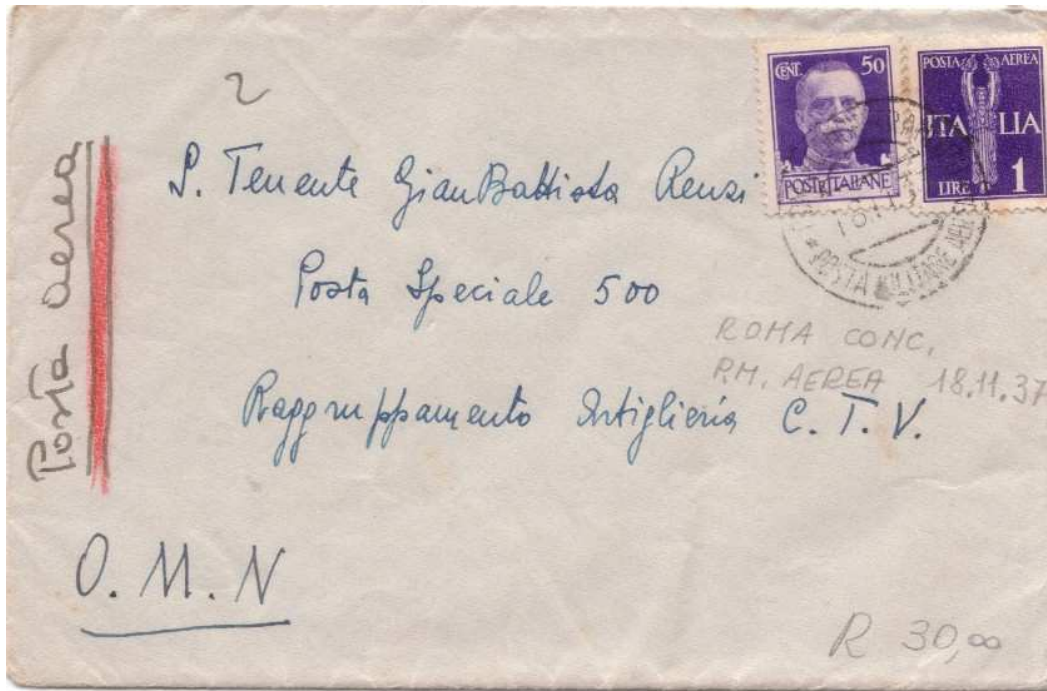 2
CENT. 50
POSTE ITALIANE
POSTA AEREA
ITALIA
LIRE 1
POSTA MILITARE AEREA
Posta aerea
S. Tenente GianBattista Renzi
Posta Speciale 500
ROMA CONC.
P.M. AEREA 18.11.37
Raggruppamento Artiglieria C. T. V.
O. M. N
R 30,00